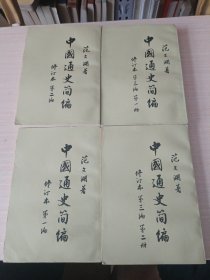 范文澜著
中國通史简编
修订本 第二编
范文澜著
中國通史简编
修订本 第三编 第一册
范文澜著
中國通史简编
修订本 第一编
范文澜著
中國通史简编
修订本 第三编 第二册